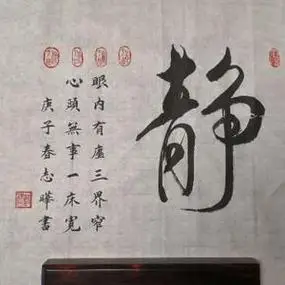 静
眼内有尘三界窄
心頭無事一床寬
庚子春志曄書